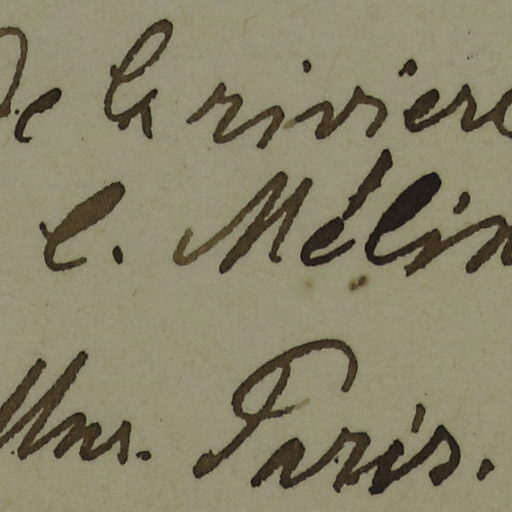 De la riviere
l. Mélin
Mus. Paris.